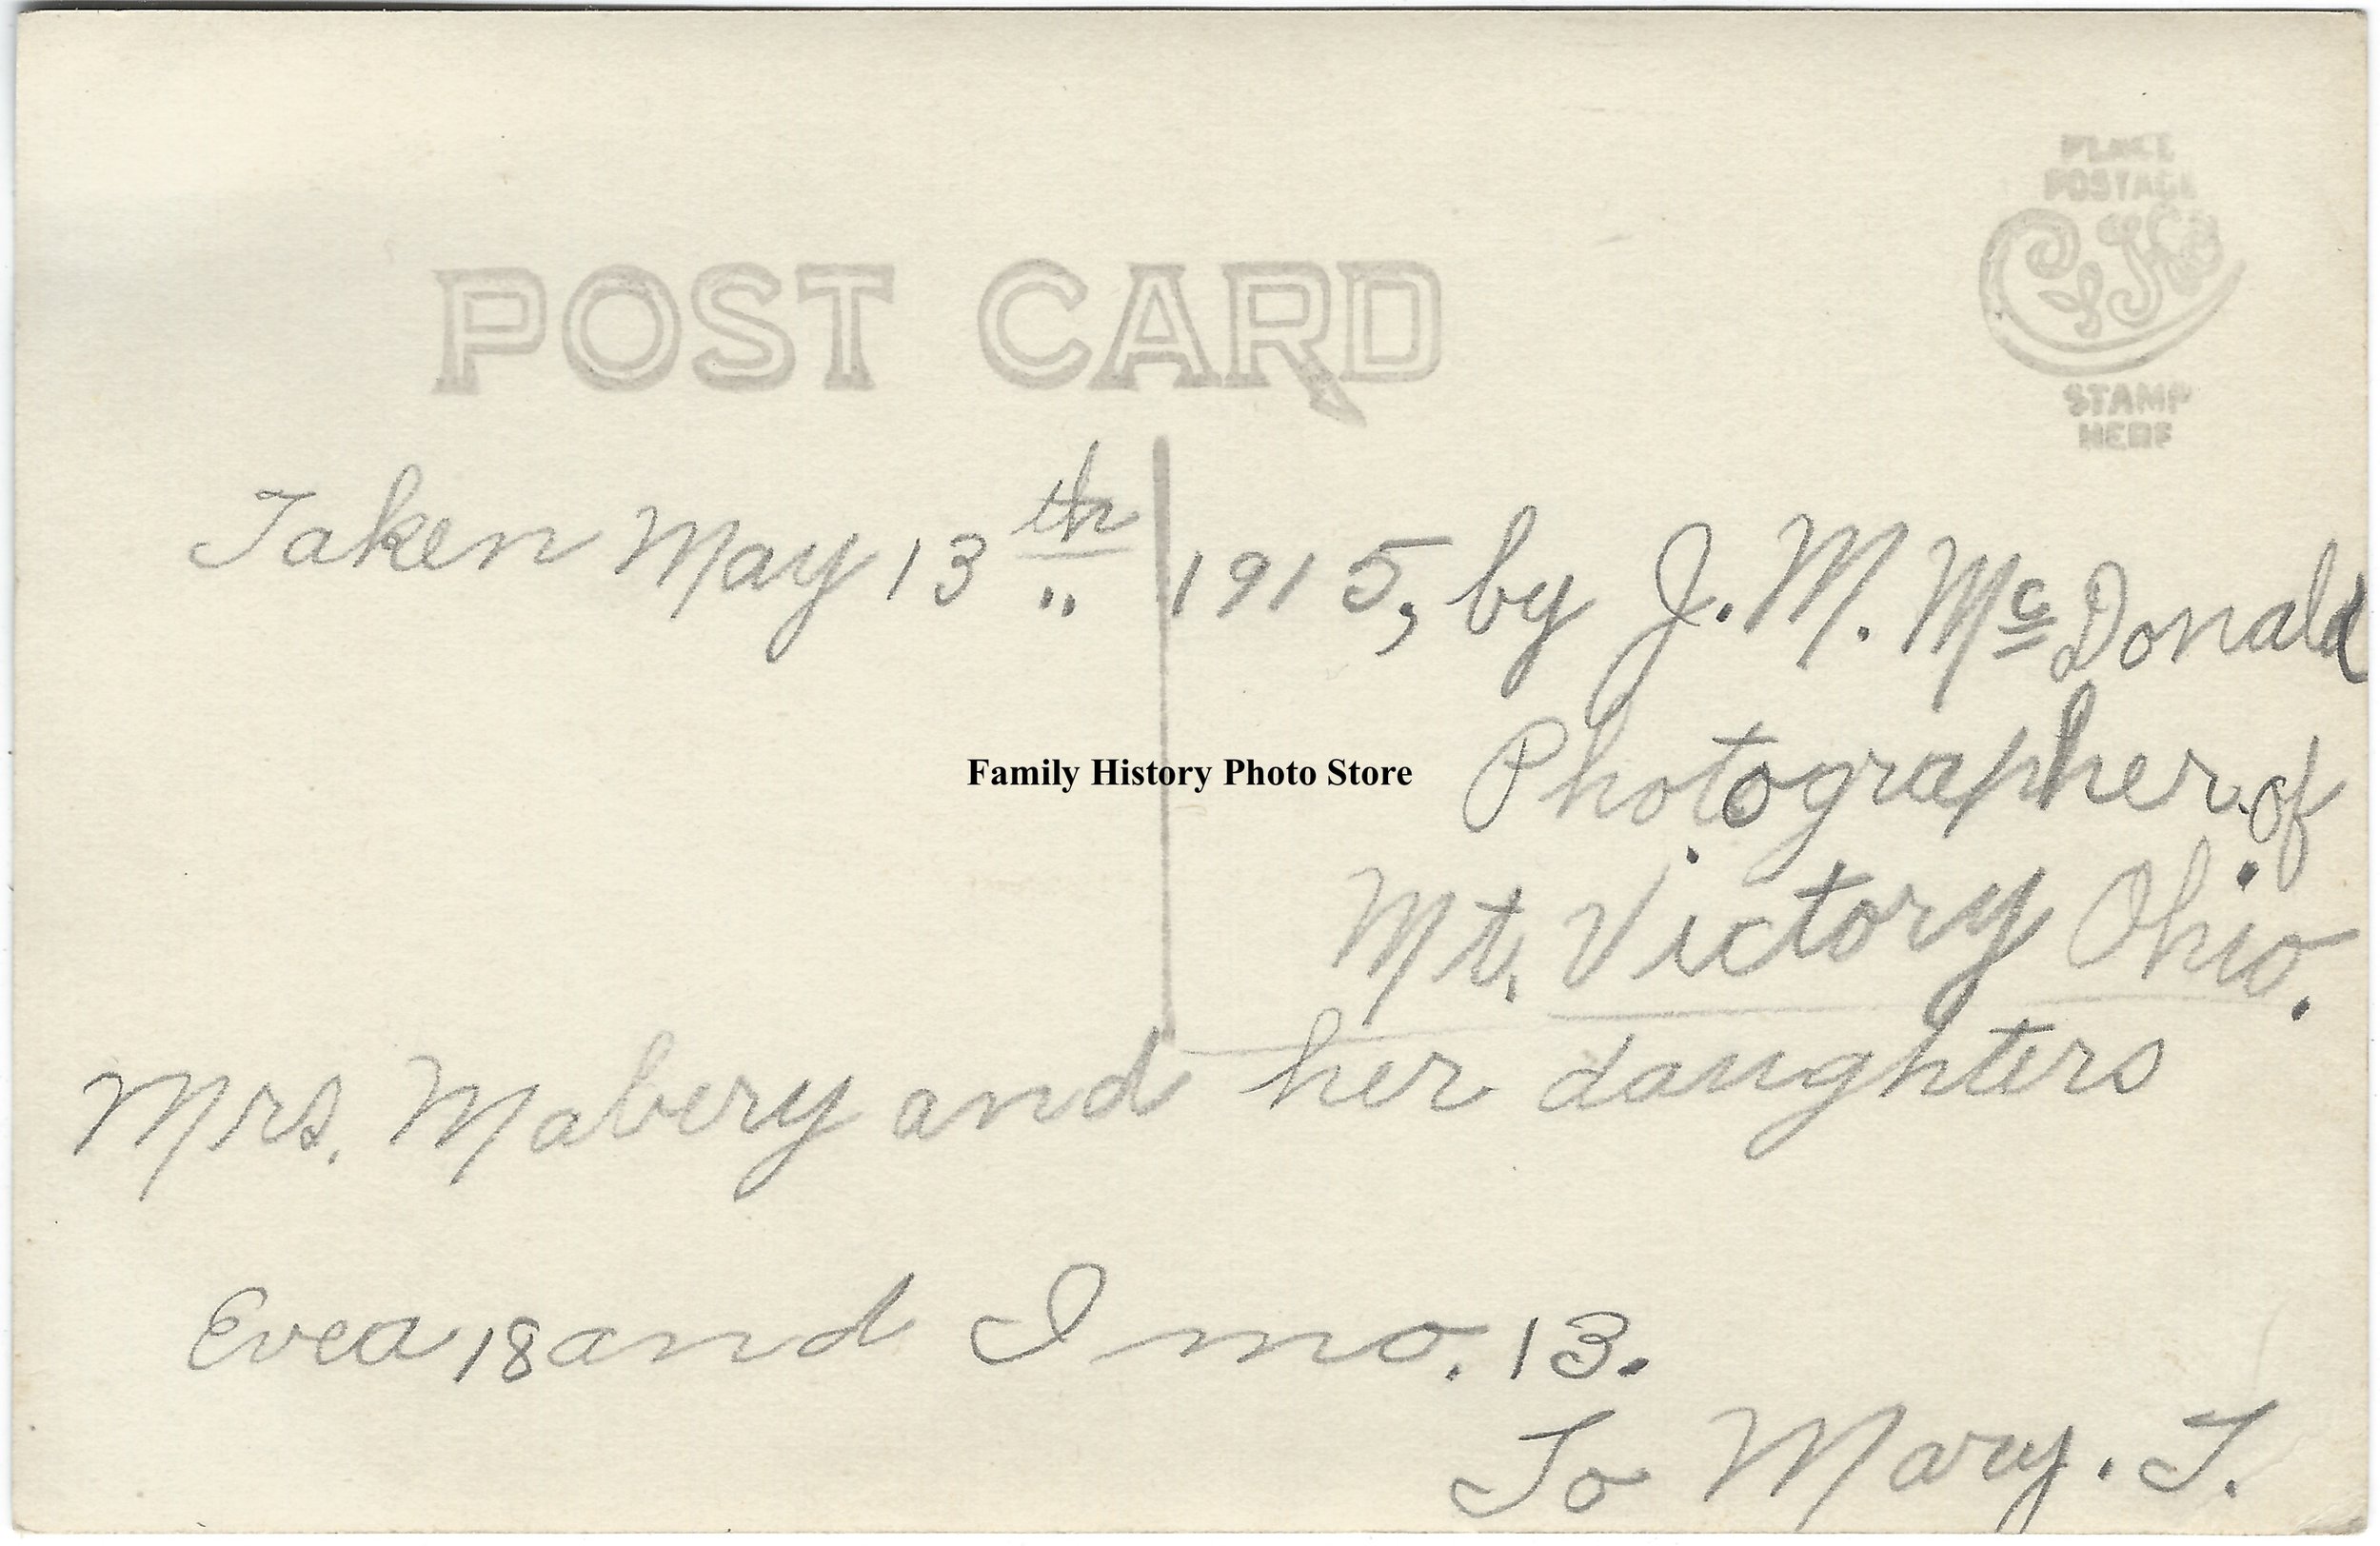 PLACE
POSTAGE
POST CARD
STAMP
HERE
Taken May 13th 1915, by J. M. McDonald
Photographer of
Mt. Victory Ohio.
Family History Photo Store
Mrs. Mabery and her daughters
Evea 18 and Imo. 13.
To Mary. T.